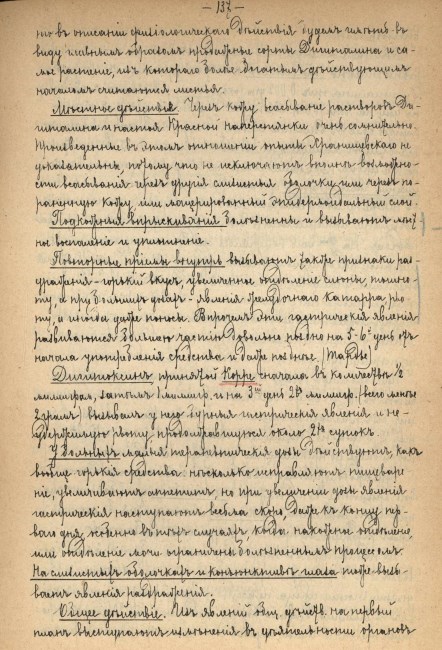 — 137 —
но въ описаніи физіологическаго дѣйствія будемъ имѣть въ
виду главнымъ образомъ продажные сорты Дигиталина и са-
мое растеніе, изъ котораго болѣе богатымъ дѣйствующимъ
началомъ считаются листья.
Мѣстное дѣйствіе. Черезъ кожу всасываніе растворовъ Ди-
гиталина и настоя Красной наперстянки очень сомнительно.
Произведенные въ этомъ отношеніи опыты Хршонщевскаго не
доказательны, потому что не исключаютъ вполнѣ возможно-
сти всасыванія черезъ другія слизистыя оболочки или черезъ по-
раненную кожу, или мацерированный эпидермоидальный слой.
Подкожныя впрыскиванія болѣзненны и вызываютъ мѣст-
ное воспаленіе и уплотненіе.
Повторные пріемы внутрь вызываютъ также признаки раз-
драженія – горькій вкусъ, увеличенное отдѣленіе слюны, тошно-
ту, а при большихъ дозахъ – явленія желудочнаго катарра, рво-
ту, а иногда даже поносы. Впрочемъ эти гастрическія явленія
развиваются большею частію довольно поздно на 5-6й день отъ
начала употребленія средства и даже позднѣе.
Дигитоксинъ принятый Коppe сначала въ количествѣ ½
миллиграм, затѣмъ 1 миллигр. и на 3ій день 2хъ миллигр. (всего менѣе
) вызвалъ у него бурныя гастрическія явленія и не-
удержимую рвоту, продолжавшуюся около 2хъ сутокъ.
У больныхъ малыя терапевтическія дозы дѣйствуютъ, какъ
вообще горькія средства: нѣсколько исправляютъ пищеваре-
ніе, увеличиваютъ аппетитъ, но при увеличеніи дозы явленія
гастрическія наступаютъ весьма скоро, даже къ концу пер-
ваго дня, особенно въ тѣхъ случаяхъ, когда накожное отдѣленіе
или отдѣленіе мочи ограничены болѣзненнымъ процессомъ.
На слизистыхъ оболочкахъ и конъюнктивѣ глаза тоже вызы-
ваетъ явленія раздраженія.
Общее дѣйствіе. Изъ явленій общ. дѣйств. на первый
планъ выступаютъ измѣненія въ дѣятельности органовъ